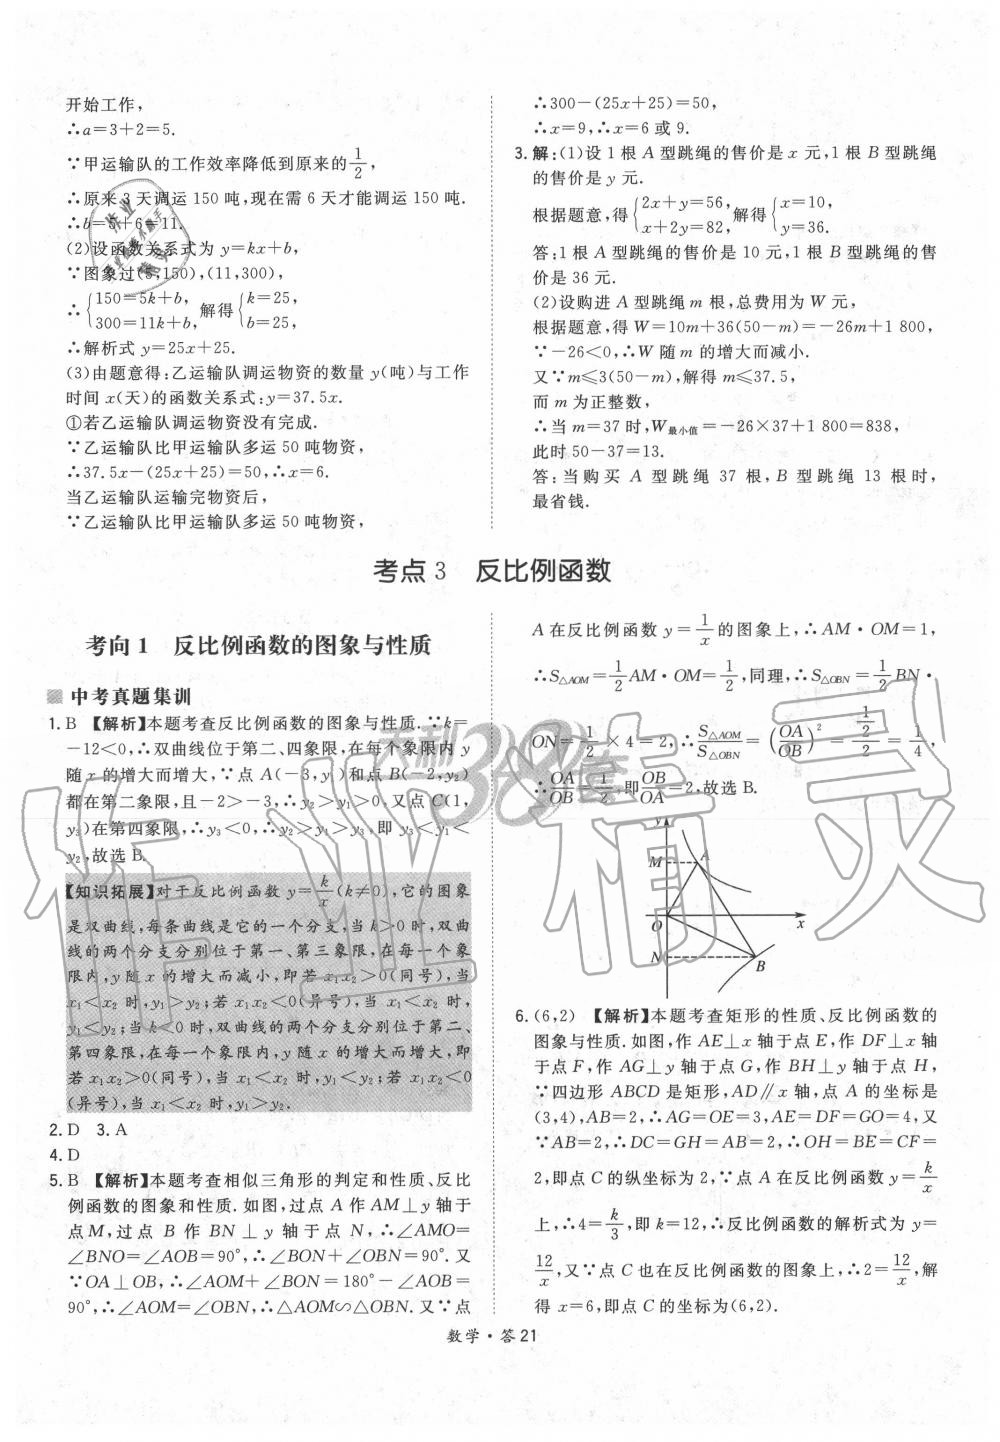 开始工作,
∴a=3+2=5.
∵甲运输队的工作效率降低到原来的1/2,
∴原来3天调运150吨,现在需6天才能调运150吨.
∴b=5+6=11.
(2)设函数关系式为 y=kx+b,
∵图象过(5,150),(11,300),
∴{150=5k+b, 300=11k+b, 解得{k=25, b=25.
∴解析式 y=25x+25.
(3)由题意得:乙运输队调运物资的数量 y(吨)与工作
时间 x(天)的函数关系式:y=37.5x.
①若乙运输队调运物资没有完成.
∵乙运输队比甲运输队多运50吨物资,
∴37.5x-(25x+25)=50,∴x=6.
当乙运输队运输完物资后,
∵乙运输队比甲运输队多运50吨物资,
∴300-(25x+25)=50,
∴x=9,∴x=6或9.
3. 解:(1)设1根A型跳绳的售价是x元,1根B型跳绳
的售价是y元.
根据题意,得{2x+y=56, x+2y=82, 解得{x=10, y=36.
答:1根A型跳绳的售价是10元,1根B型跳绳的售
价是36元.
(2)设购进A型跳绳m根,总费用为W元,
根据题意,得W=10m+36(50-m)=-26m+1 800,
∵-26<0,∴W随m的增大而减小.
又∵m≤3(50-m),解得m≤37.5,
而m为正整数,
∴当m=37时,W最小值=-26×37+1 800=838,
此时50-37=13.
答:当购买A型跳绳37根,B型跳绳13根时,
最省钱.
考点3 反比例函数
考向1 反比例函数的图象与性质
中考真题集训
1. B 【解析】本题考查反比例函数的图象与性质.∵k=
-12<0,∴双曲线位于第二、四象限,在每个象限内y
随x的增大而增大,∵点A(-3,y₁)和点B(-2,y₂)
都在第二象限,且-2>-3,∴y₂>y₁>0,又点C(1,
y₃)在第四象限,∴y₃<0,∴y₂>y₁>y₃,即y₃<y₁<
y₂,故选B.
【知识拓展】对于反比例函数y=k/x(k≠0),它的图象
是双曲线,每条曲线是它的一个分支,当k>0时,双曲
线的两个分支分别位于第一、第三象限,在每一个象
限内,y随x的增大而减小,即若x₁x₂>0(同号),当
x₁<x₂时,y₁>y₂;若x₁x₂<0(异号),当x₁<x₂时,
y₁<y₂;当k<0时,双曲线的两个分支分别位于第二、
第四象限,在每一个象限内,y随x的增大而增大,即
若x₁x₂>0(同号),当x₁<x₂时,y₁<y₂;若x₁x₂<0
(异号),当x₁<x₂时,y₁>y₂.
2. D 3. A
4. D
5. B 【解析】本题考查相似三角形的判定和性质、反比
例函数的图象和性质.如图,过点A作AM⊥y轴于
点M,过点B作BN⊥y轴于点N,∴∠AMO=
∠BNO=∠AOB=90°,∴∠BON+∠OBN=90°.又
∵OA⊥OB,∴∠AOM+∠BON=180°-∠AOB=
90°,∴∠AOM=∠OBN,∴△AOM∽△OBN.又∵点
A在反比例函数y=1/x的图象上,∴AM·OM=1,
∴S△AOM=1/2AM·OM=1/2,同理,∴S△OBN=1/2BN·
ON=1/2×4=2,∴S△AOM/S△OBN=(OA/OB)²=(1/2)/2=1/4,
∴OA/OB=1/2,即OB/OA=2,故选B.
y
M
A
O
x
N
B
6. (6,2) 【解析】本题考查矩形的性质、反比例函数的
图象与性质.如图,作AE⊥x轴于点E,作DF⊥x轴
于点F,作AG⊥y轴于点G,作BH⊥y轴于点H,
∵四边形ABCD是矩形,AD∥x轴,点A的坐标是
(3,4),AB=2,∴AG=OE=3,AE=DF=GO=4,又
∵AB=2,∴DC=GH=AB=2,∴OH=BE=CF=
2,即点C的纵坐标为2,∵点A在反比例函数y=k/x
上,∴4=k/3,即k=12,∴反比例函数的解析式为y=
12/x,又∵点C也在反比例函数的图象上,∴2=12/x,解
得x=6,即点C的坐标为(6,2).
数学·答21
作业精灵
天利38套